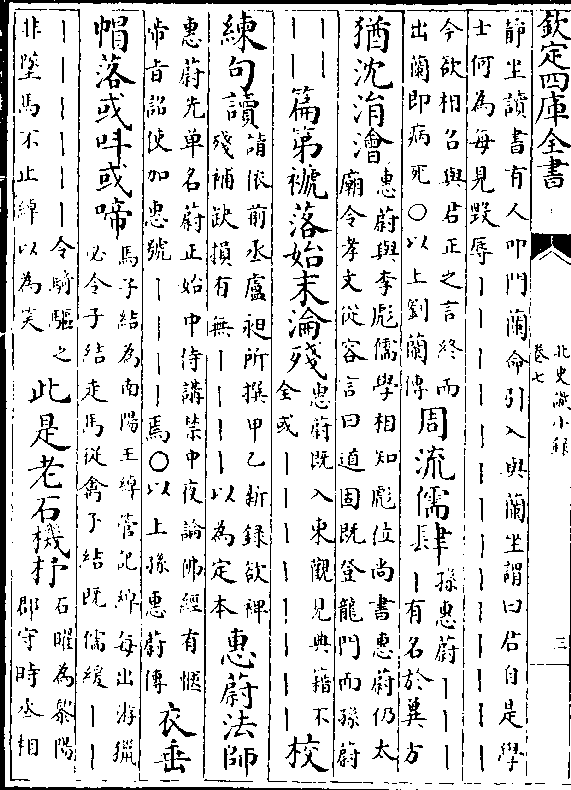 欽定四庫全書
北史識小録
卷七
三
靜坐讀書有人叩門蘭命引入與蘭坐謂曰君自是學
士何為每見毀辱丨丨丨丨丨丨丨丨丨丨丨
今欲相召與君正之言終而
出蘭即病死〇以上劉蘭傳
周流儒肆
孫惠蔚丨丨丨
丨有名於冀方
猶沈涓澮
惠蔚與李彪儒學相知彪位尚書惠蔚仍太
廟令孝文從容言曰道固既登龍門而孫蔚
丨丨
丨丨
篇第褫落始末淪殘
惠蔚既入東觀見典籍不
全或丨丨丨丨丨丨丨丨
校
練句讀
請依前丞盧昶所撰甲乙新録欲裨
殘補缺損有無丨丨丨丨以為定本
惠蔚法師
惠蔚先單名蔚正始中侍講禁中夜論佛經有愜
帝旨詔使加惠號丨丨丨丨焉〇以上孫惠蔚傳
衣垂
帽落或叫或啼
馬子結為南陽王綽管記綽每出游獵
必令子結走馬從禽子結既儒緩丨丨
丨丨丨丨丨丨令騎驅之
非墜馬不止綽以為笑
此是老石機杼
石曜為黎陽
郡守時丞相